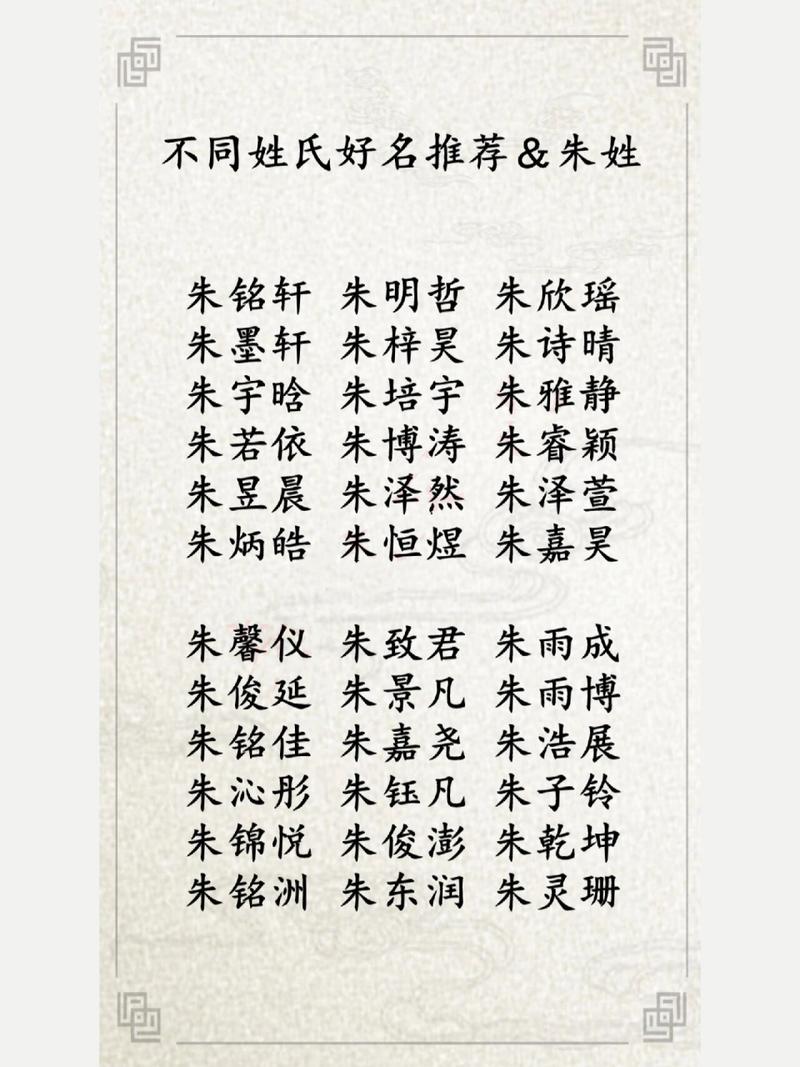 不同姓氏好名推荐&朱姓
朱铭轩 朱明哲 朱欣瑶
朱墨轩 朱梓昊 朱诗晴
朱宇晗 朱培宇 朱雅静
朱若依 朱博涛 朱睿颖
朱昱晨 朱泽然 朱泽萱
朱炳皓 朱恒煜 朱嘉昊
朱馨仪 朱致君 朱雨成
朱俊延 朱景凡 朱雨博
朱铭佳 朱嘉尧 朱浩展
朱沁彤 朱钰凡 朱子铃
朱锦悦 朱俊澎 朱乾坤
朱铭洲 朱东润 朱灵珊